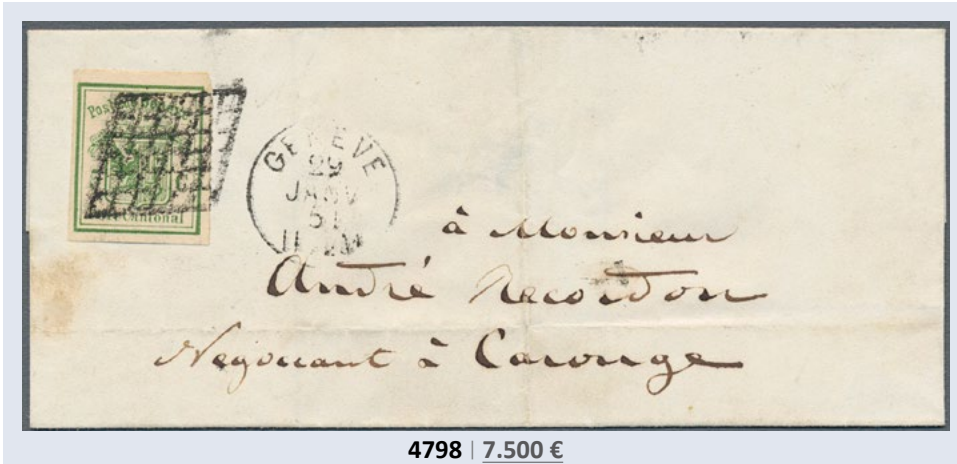 Port Cantonal
GENÈVE
29
JANV
51
à Monsieur
André Recordon
Negociant à Carouge
4798 | 7.500 €